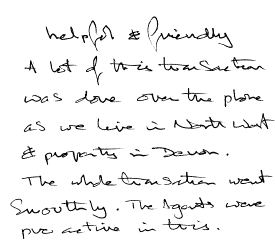 helpful & friendly
A lot of this transaction
was done over the phone
as we live in North West
& property in Devon.
The whole transaction went
Smoothly. The Agents were
pro active in this.